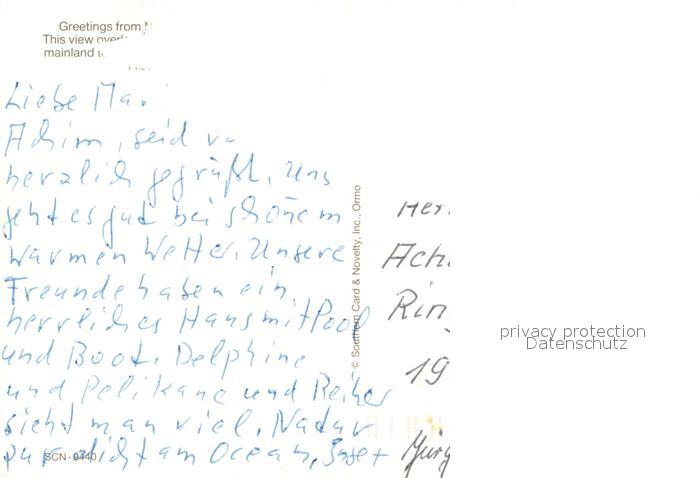 Greetings from
This view
mainland
Liebe
Achim, seid
herzlich gegrüßt. Uns
geht es gut bei schönem
warmen Wetter. Unsere
Freunde haben ein
herrliches Haus mit Pool
und Boot. Delphine
und Pelikane und Reiher
sieht man viel. Natur
pur dicht am Ocean,
SCN - 9440
© Southern Card & Novelty, Inc., Ormo
privacy protection
Datenschutz
19